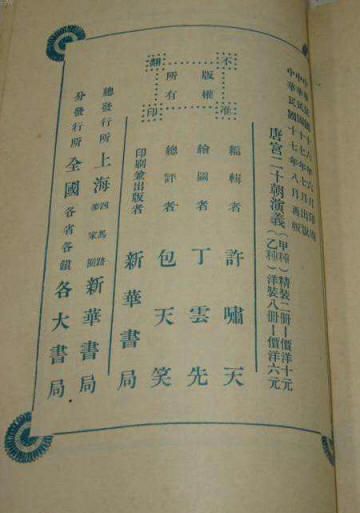 中華民國十六年六月印刷
中華民國十七年七月出版
中華民國十七年八月再版
唐宮二十朝演義
(甲種)精裝二冊—價洋十元
(乙種)洋裝八冊—價洋六元
不准翻印
版權所有
編輯者 許嘯天
繪圖者 丁雲先
總評者 包天笑
印刷兼出版者 新華書局
總發行所 上海四馬路 家圈 新華書局
分發行所 全國各省各鎮各大書局